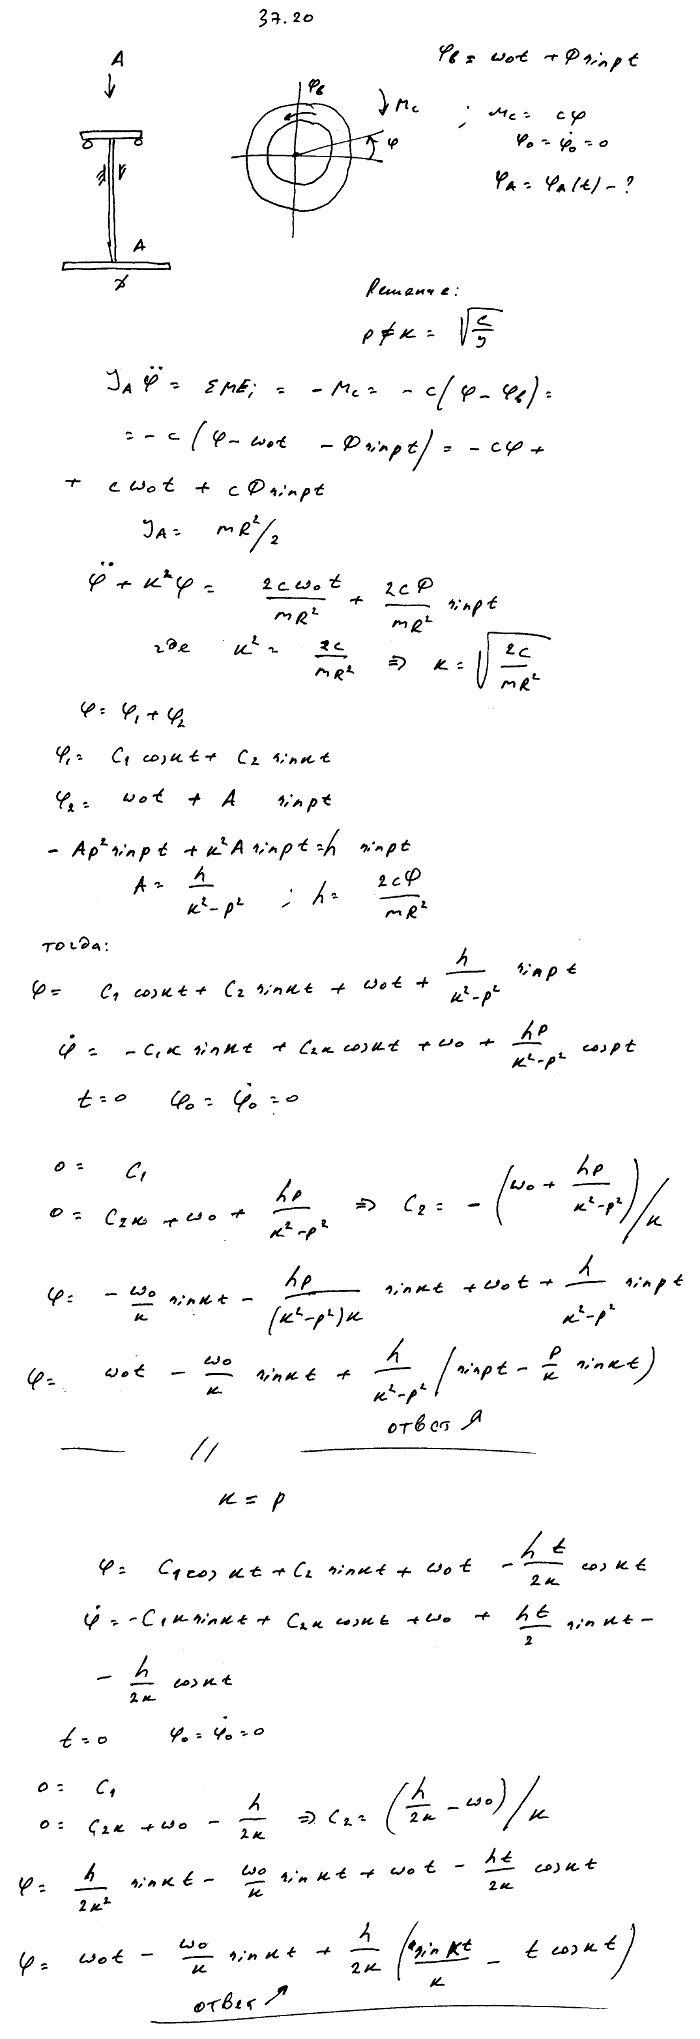 37.20
A
φв
Mc
φ
A
φв = ω₀t + Φ sin pt
; Mc = cφ
φ₀ = φ̇₀ = 0
φA = φA(t) - ?
Решение:
p ≠ κ = √(c/J)
J_A φ̈ = ΣMEᵢ = - Mc = - c(φ - φв) =
= - c (φ - ω₀t - Φ sin pt) = - cφ +
+ cω₀t + cΦ sin pt
J_A = mR²/2
φ̈ + κ²φ = 2cω₀t/mR² + 2cΦ/mR² sin pt
где κ² = 2c/mR² ⇒ κ = √(2c/mR²)
φ = φ₁ + φ₂
φ₁ = C₁ cos κt + C₂ sin κt
φ₂ = ω₀t + A sin pt
- Ap² sin pt + κ²A sin pt = h sin pt
A = h/(κ² - p²) ; h = 2cΦ/mR²
тогда:
φ = C₁ cos κt + C₂ sin κt + ω₀t + h/(κ² - p²) sin pt
φ̇ = - C₁κ sin κt + C₂κ cos κt + ω₀ + hp/(κ² - p²) cos pt
t = 0 φ₀ = φ̇₀ = 0
0 = C₁
0 = C₂κ + ω₀ + hp/(κ² - p²) ⇒ C₂ = - (ω₀ + hp/(κ² - p²))/κ
φ = - ω₀/κ sin κt - hp/((κ² - p²)κ) sin κt + ω₀t + h/(κ² - p²) sin pt
φ = ω₀t - ω₀/κ sin κt + h/(κ² - p²) (sin pt - p/κ sin κt)
ответ
//
κ = p
φ = C₁ cos κt + C₂ sin κt + ω₀t - ht/2κ cos κt
φ̇ = - C₁κ sin κt + C₂κ cos κt + ω₀ + ht/2 sin κt -
- h/2κ cos κt
t = 0 φ₀ = φ̇₀ = 0
0 = C₁
0 = C₂κ + ω₀ - h/2κ ⇒ C₂ = (h/2κ - ω₀)/κ
φ = h/2κ² sin κt - ω₀/κ sin κt + ω₀t - ht/2κ cos κt
φ = ω₀t - ω₀/κ sin κt + h/2κ (sin κt/κ - t cos κt)
ответ